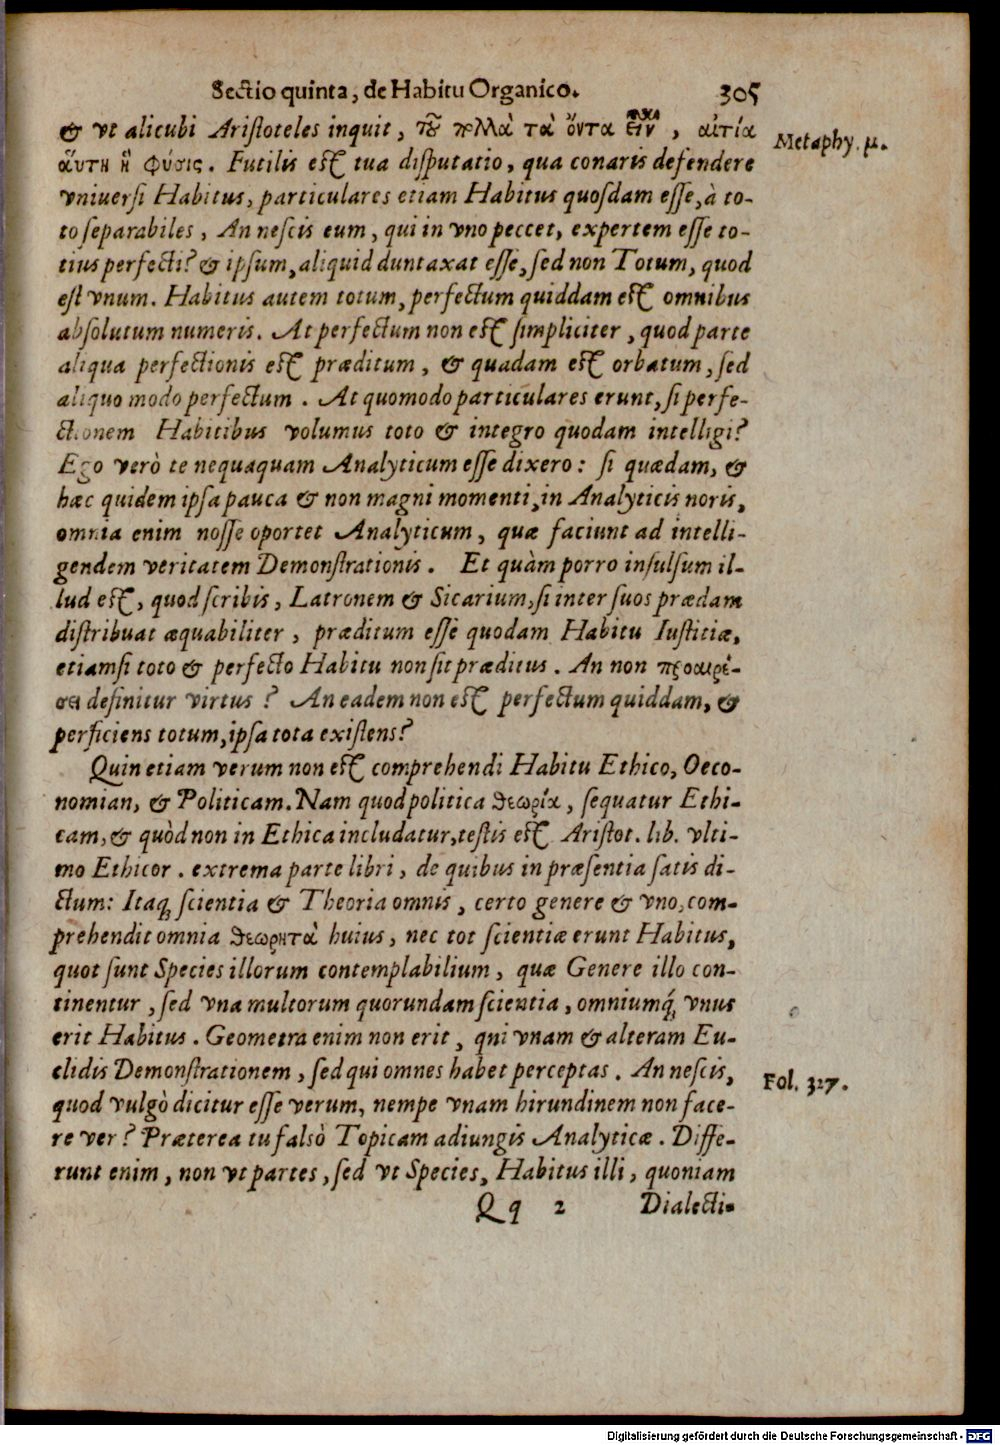 Sectio quinta, de Habitu Organico. 305
& vt alicubi Aristoteles inquit, τοῦ πολλὰ τὰ ὄντα εἶν, αἰτία
Metaphy. μ.
αὕτη ἡ φύσις. Futilis est tua disputatio, qua conaris defendere
vniuersi Habitus, particulares etiam Habitus quosdam esse, à to-
to separabiles, An nescis eum, qui in vno peccet, expertem esse to-
tius perfecti? & ipsum, aliquid duntaxat esse, sed non Totum, quod
est vnum. Habitus autem totum, perfectum quiddam est omnibus
absolutum numeris. At perfectum non est simpliciter, quod parte
aliqua perfectionis est præditum, & quadam est orbatum, sed
aliquo modo perfectum. At quomodo particulares erunt, si perfe-
ctionem Habitibus volumus toto & integro quodam intelligi?
Ego verò te nequaquam Analyticum esse dixero: si quædam, &
hæc quidem ipsa pauca & non magni momenti, in Analyticis noris,
omnia enim nosse oportet Analyticum, quæ faciunt ad intelli-
gendem veritatem Demonstrationis. Et quàm porro insulsum il-
lud est, quod scribis, Latronem & Sicarium, si inter suos prædam
distribuat æquabiliter, præditum esse quodam Habitu Iustitiæ,
etiamsi toto & perfecto Habitu non sit præditus. An non προαιρέ-
σει definitur virtus? An eadem non est perfectum quiddam, &
perficiens totum, ipsa tota existens?
Quin etiam verum non est comprehendi Habitu Ethico, Oeco-
nomian, & Politicam. Nam quod politica θεωρία, sequatur Ethi-
cam, & quòd non in Ethica includatur, testis est Aristot. lib. vlti-
mo Ethicor. extrema parte libri, de quibus in præsentia satis di-
ctum: Itaq; scientia & Theoria omnis, certo genere & vno, com-
prehendit omnia θεωρητὰ huius, nec tot scientiæ erunt Habitus,
quot sunt Species illorum contemplabilium, quæ Genere illo con-
tinentur, sed vna multorum quorundam scientia, omniumq́; vnus
erit Habitus. Geometra enim non erit, qni vnam & alteram Eu-
clidis Demonstrationem, sed qui omnes habet perceptas. An nescis,
Fol. 327.
quod vulgò dicitur esse verum, nempe vnam hirundinem non face-
re ver? Præterea tu falsò Topicam adiungis Analyticæ. Diffe-
runt enim, non vt partes, sed vt Species, Habitus illi, quoniam
Qq 2 Dialecti-
Digitalisierung gefördert durch die Deutsche Forschungsgemeinschaft - DFG